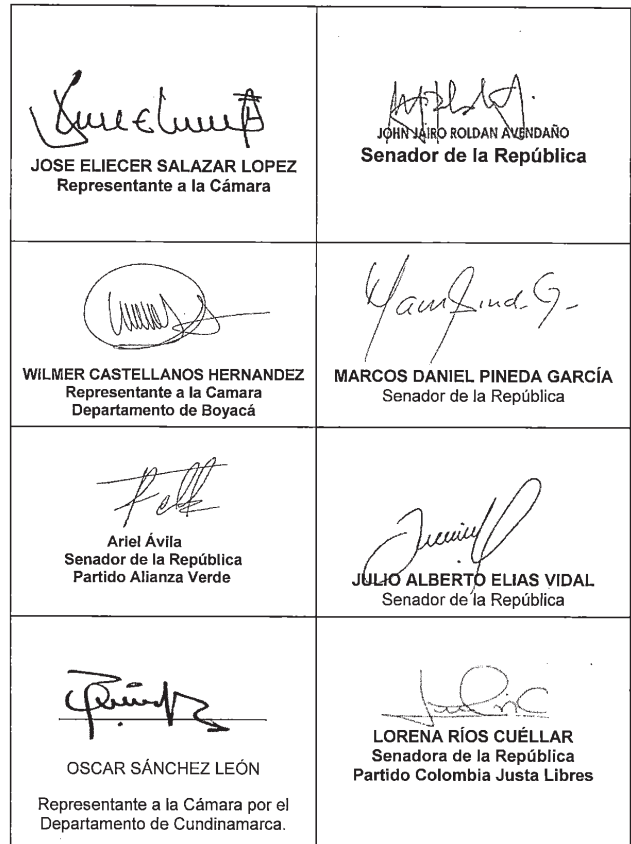 JOSE ELIECER SALAZAR LOPEZ
Representante a la Cámara
JOHN JAIRO ROLDAN AVENDAÑO
Senador de la República
WILMER CASTELLANOS HERNANDEZ
Representante a la Camara
Departamento de Boyacá
MARCOS DANIEL PINEDA GARCÍA
Senador de la República
Ariel Ávila
Senador de la República
Partido Alianza Verde
JULIO ALBERTO ELIAS VIDAL
Senador de la República
OSCAR SÁNCHEZ LEÓN
Representante a la Cámara por el
Departamento de Cundinamarca.
LORENA RÍOS CUÉLLAR
Senadora de la República
Partido Colombia Justa Libres